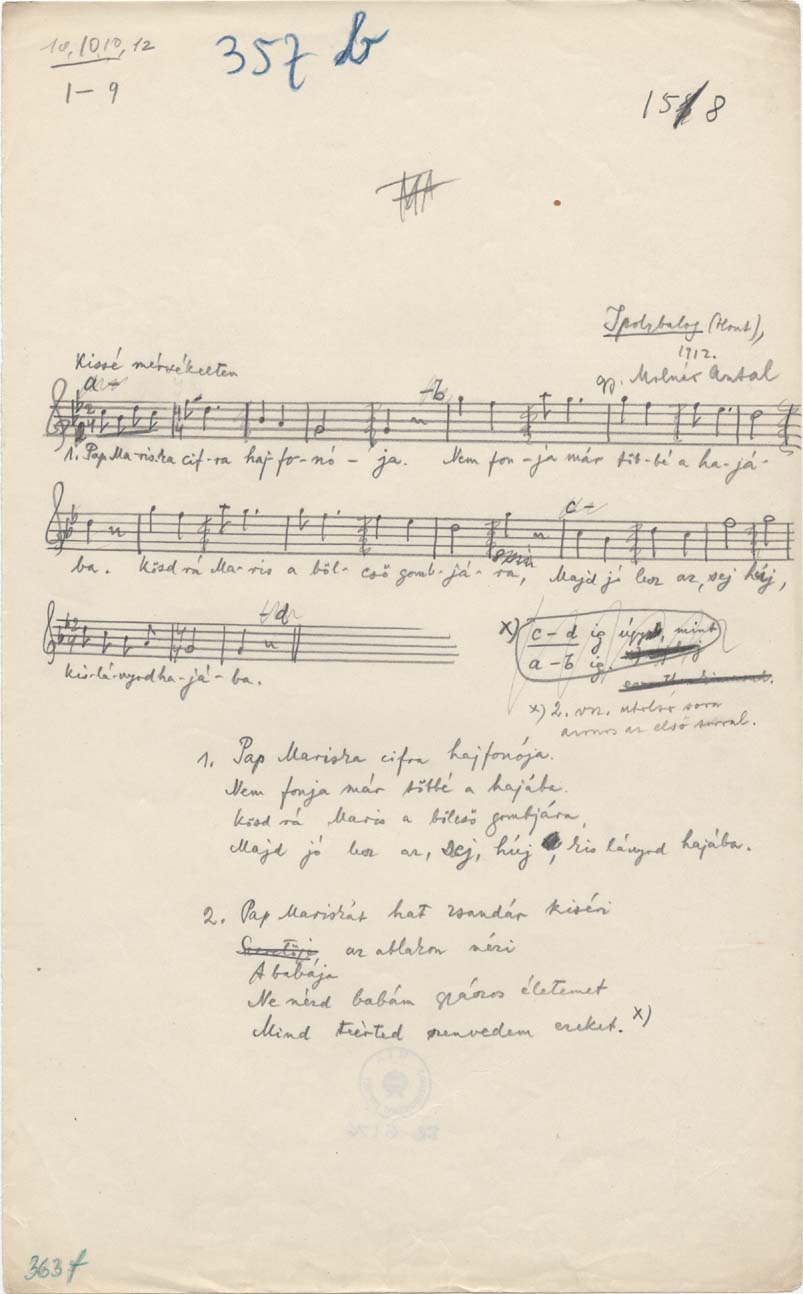 10, 10 10, 12
357 b
1 – 9
15 8
MA
Ipolybalog (Hont),
1912.
gy. Molnár Antal
Kissé mérsékelten
a
b
1. Pap Ma-ris-ka cif-ra haj-fo-nó – ja. Nem fon-ja már töb-bé a ha-já-
c
ba. Kösd rá Ma-ris a böl-cső gomb-já-ra, Majd jó lesz az, sej húj,
d
kis-lá-nyodha-já-ba.
x) c – d ig úgy, mint
a – b ig.
x) 2. vsz. utolsó sora
azonos az első sorral.
1. Pap Mariska cifra hajfonója.
Nem fonja már többé a hajába.
Kösd rá Maris a bölcső gombjára,
Majd jó lesz az, sej, húj, kis lányod hajába.
2. Pap Mariskát hat zsandár kiséri
Szeretője az ablakon nézi
A babája
Ne nézd babám gyászos életemet
Mind teérted szenvedem ezeket. x)
363 f